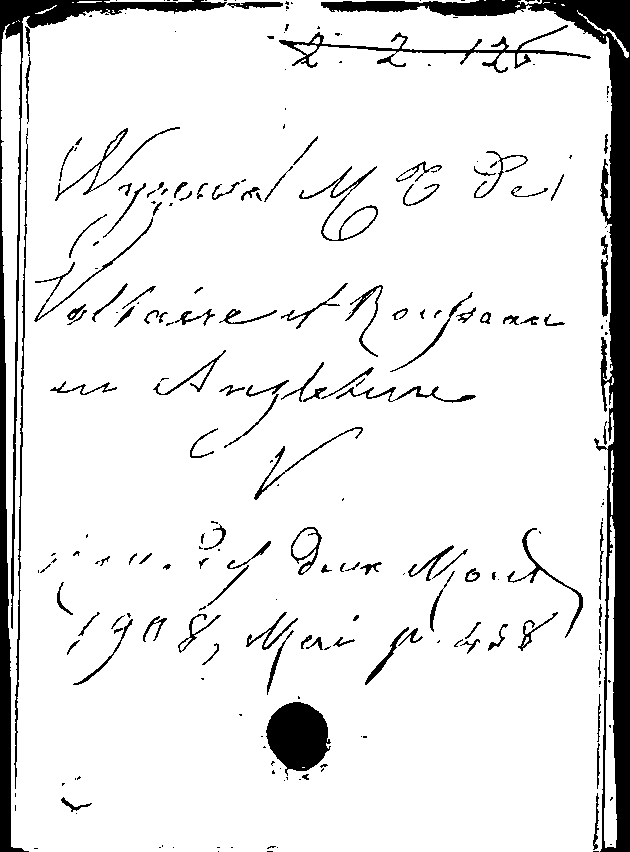 2. 2. 126
Wyzewa M T De
Voltaire et Rousseau
en Angleterre
V
Rev. des deux Mond
1908, Mai p. 458